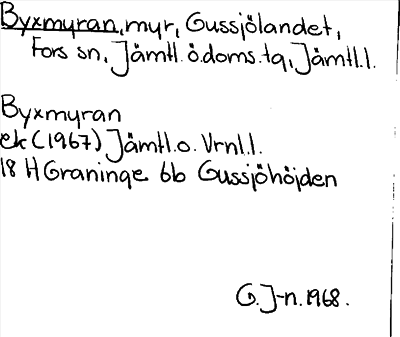 Byxmyran, myr, Gussjölandet,
Fors sn, Jämtl.ö.doms.tg, Jämtl.l.
Byxmyran
ek (1967) Jämtl.o. Vrnl.l.
18 H Graninge 6b Gussjöhöjden
G. J-n. 1968.